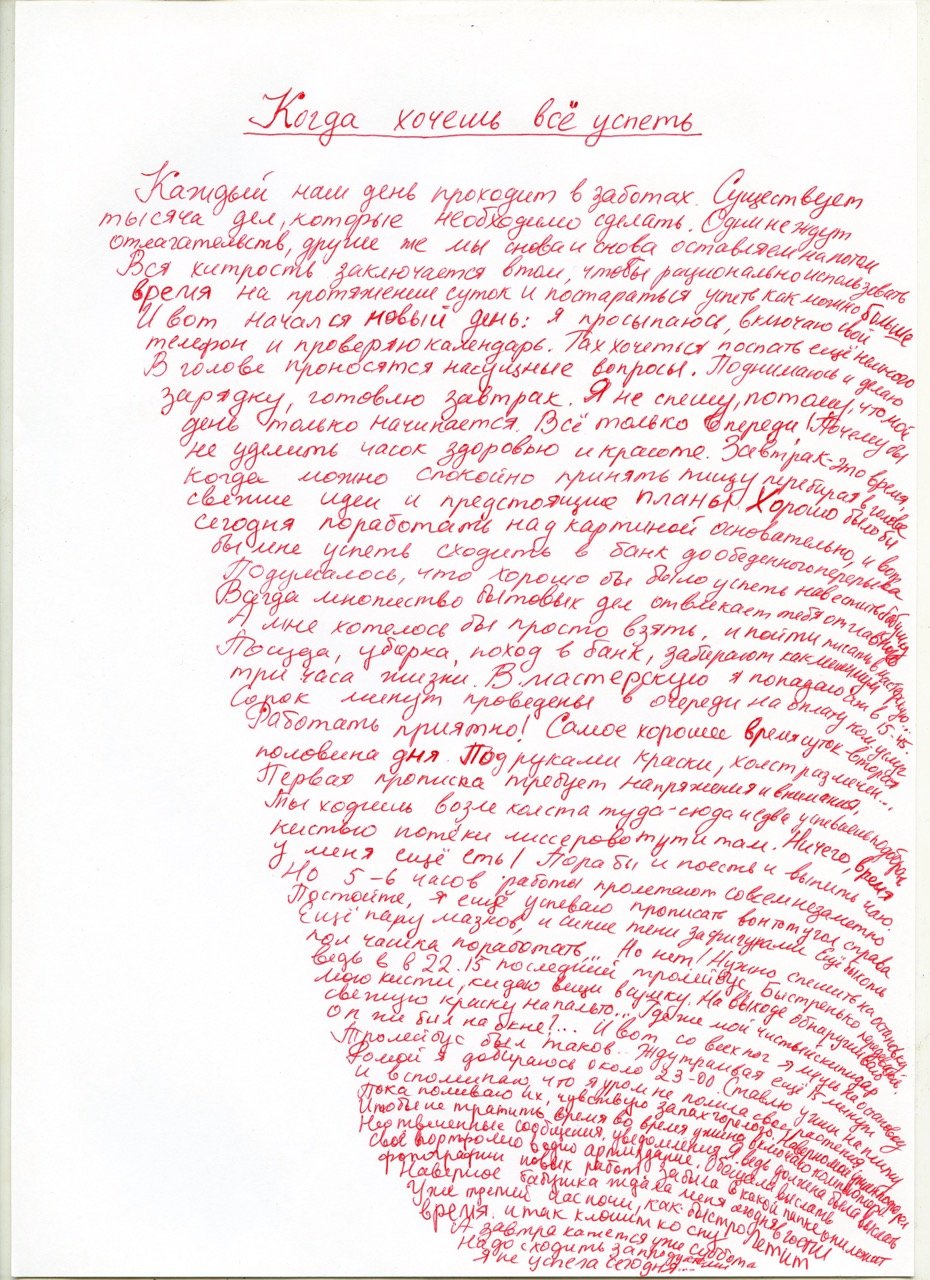 Когда хочешь всё успеть
Каждый наш день проходит в заботах. Существует
тысяча дел, которые необходимо сделать. Одни не ждут
отлагательств, другие же мы снова и снова оставляем на потом
Вся хитрость заключается в том, чтобы рационально использовать
время на протяжении суток и постараться успеть как можно больше
И вот начался новый день: я просыпаюсь, включаю свой
телефон и проверяю календарь. Так хочеться поспать ещё немного
В голове проносятся насущные вопросы. Поднимаюсь и делаю
зарядку, готовлю завтрак. Я не спешу, потому, что мой
день только начинается. Всё только впереди! Почему бы
не уделить часок здоровью и красоте. Завтрак-это время,
когда можно спокойно принять пищу перебирая в голове
свежие идеи и предстоящие планы. Хорошо было бы
сегодня поработать над картиной основательно, и ещё
бы мне успеть сходить в банк до обеденного перерыва
Подумалось, что хорошо бы было успеть навестить бабушку
Всегда множество бытовых дел отвлекает тебя от главного
А мне хотелось бы просто взять, и пойти писать в мастерскую...
Посуда, уборка, поход в банк, забирают как минимум
три часа жизни. В мастерскую я попадаю аж в 15-45.
Сорок минут проведены в очереди на оплату ком. услуг
Работать приятно! Самое хорошее время суток-вторая
половина дня. Под руками краски, холст размечен...
Первая прописка требует напряжения и внимания,
Ты ходишь возле холста туда-сюда и едва успеваешь подбирать
кистью потёки лиссеровок тут и там. Ничего, время
у меня ещё есть! Пора бы и поесть и выпить чаю.
Но 5-6 часов работы пролетают совсем незаметно
Постойте, я ещё успеваю прописать вон тот угол справа
Ещё пару мазков, и синие тени за фигурами Ещё хоть
пол часика поработать... Но нет! Нужно спешить на остановку-
ведь в в 22.15 последний тролейбус. Быстренько
мою кисти, кидаю вещи в сумку. На выходе обнаруживаю
свежую краску на пальто... Где же мой чистый скипидар
он же был на окне?... И вот со всех ног я мчусь на остановку
Тролейбус был таков.. Жду трамвая ещё 15 минут
Домой я добираюсь около 23-00. Ставлю ужин на плитку
и вспоминаю, что я утром не полила свои растения
Пока поливаю их, чувствую запах горелого.
Чтобы не тратить время во время ужина включаю компьютер
Неотвеченные сообщения, уведомления. Я ведь должна была выслать
своё портфолио ведь Обещала выслать
фотографии новых работ, забыла в какой папке они лежат
Наверное бабушка ждала меня сегодня в гости
Уже третий час ночи, как быстро летит
время. и так клонит ко сну.
А завтра кажется уже суббота
Надо сходить за продуктами
Я не успела сегодня...